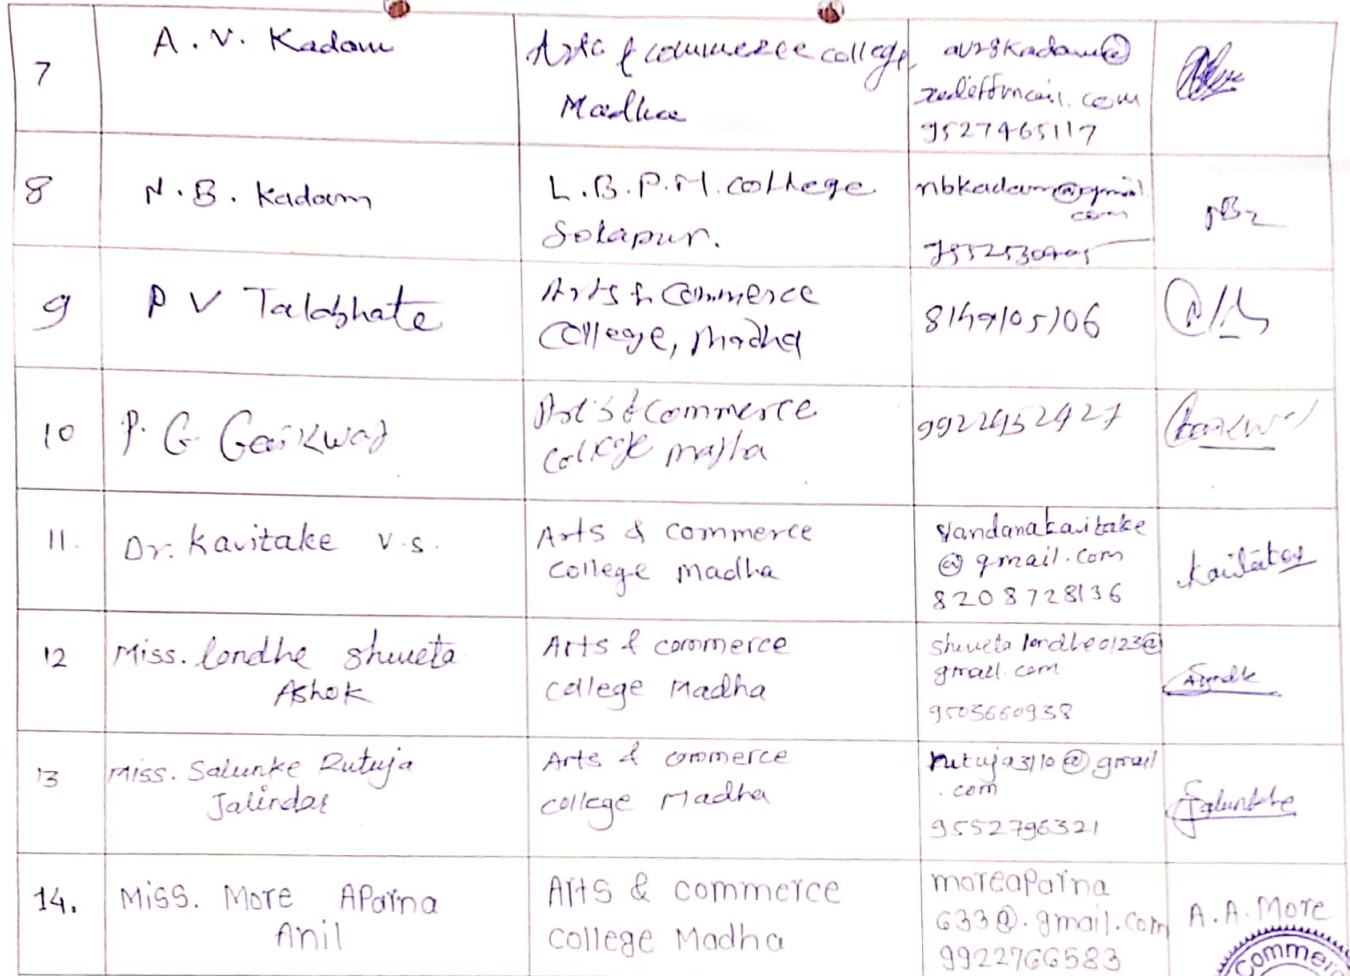 7
A. V. Kadam
Arts & commerce college,
Madha
@
rediffmail.com
9527465117
8
N. B. Kadam
L.B.P.M. college
Solapur.
nbkadam@gmail.
com
9
P V Talabhate
Arts & Commerce
College, Madha
8149105106
10
P. G Gaikwad
Arts & Commerce
college madha
11.
Dr. Kavitake v.s.
Arts & commerce
college madha
vandanakavitake
@gmail.com
8208728136
12
Miss. londhe shweta
Ashok
Arts & commerce
college Madha
shwetalondhe0123@
gmail.com
9503660938
13
Miss. Salunke Rutuja
Jalindar
Arts & commerce
college Madha
rutuja3110@gmail
.com
9552796321
Salunkhe
14.
Miss. More Aparna
Anil
Arts & commerce
college Madha
moreaparna
633@.gmail.com
9922766583
A.A.More
Commer